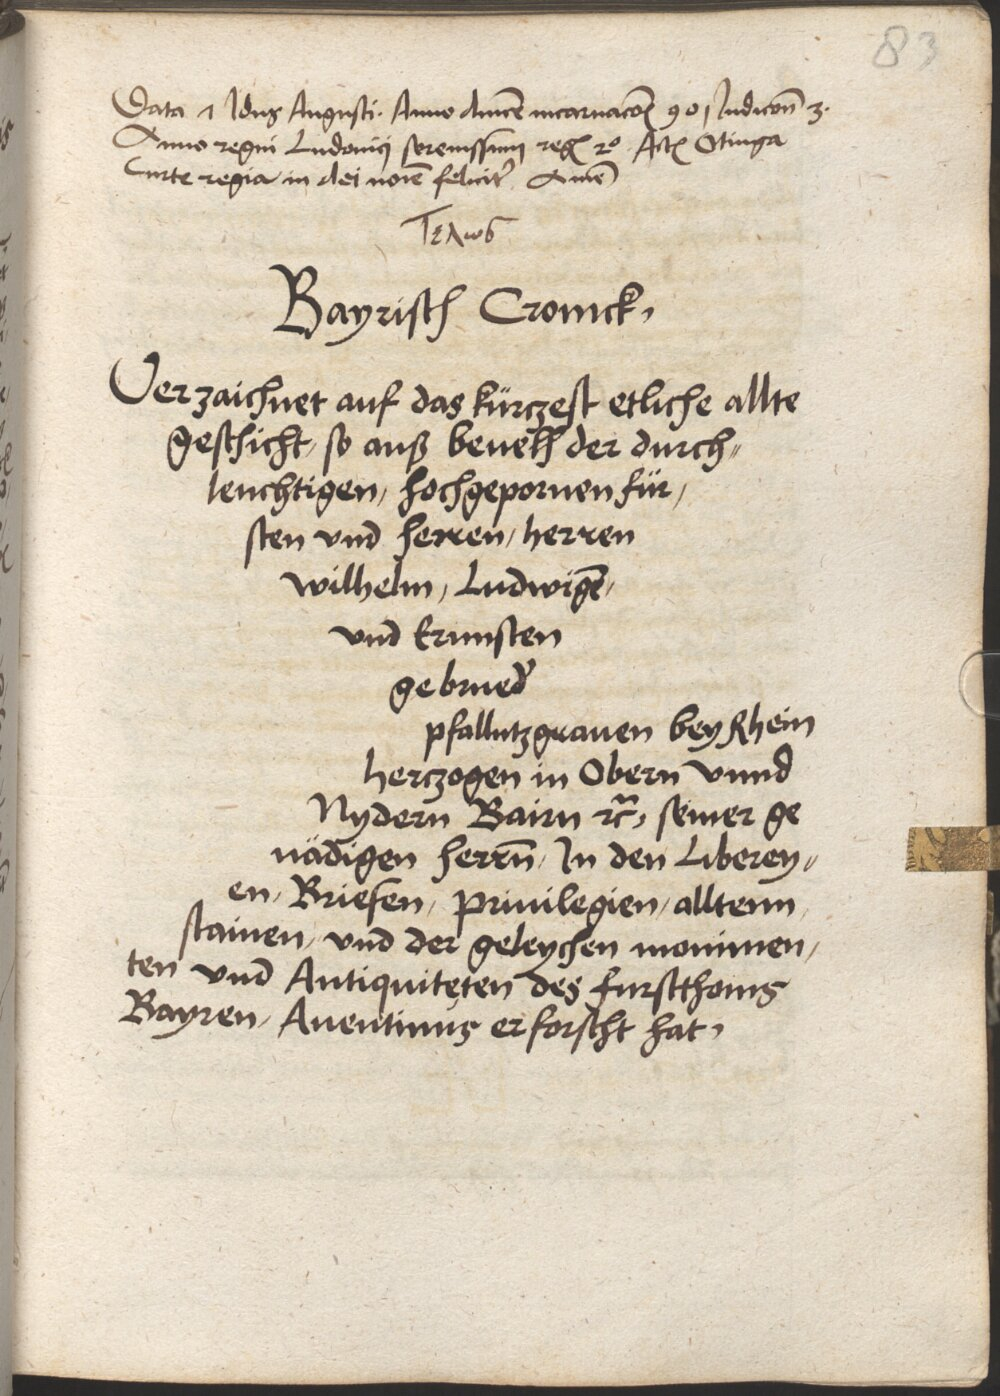 83
Data 1 Idus Augusti. Anno dnicē incarnacōĪ 901 Indicōn 3.
Anno regni Ludouici serenissimi reg 2o Act Otinga
Curte regia in dei noīe felicit Amē
Τελωσ
Bayrisch Cronick,
Verzaichnet auf das kürczest etliche allte
geschicht, so auß beuelh der durch„
leuchtigen, hochgepornen für,
sten vnd herren, herren
wilhelm, Ludwigē,
vnd Ernnsten
gebrued
pfalltzgrauen bey Rhein
herczogen in Obern vnnd
Nydern Bairn ꝛc, seiner ge
nädigen herrn, In den Liberey„
en, Briefen, Priuilegien, alltenn
stainen, vnd der geleychen monimen,
ten vnd Antiquiteten des furstthoms
Bayren, Auentinus erforscht hat,